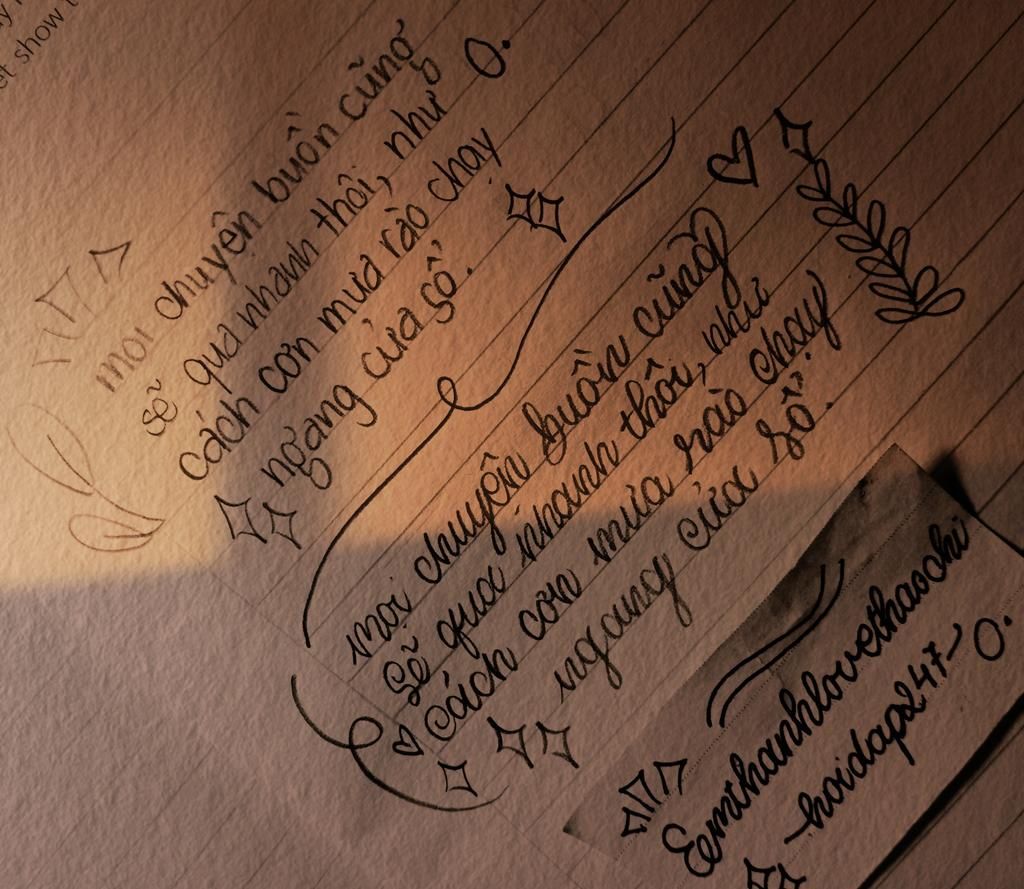 et show t
mọi chuyện buồn cũng
sẽ qua nhanh thôi, như
cách cơn mưa rào chạy
ngang cửa sổ.
mọi chuyện buồn cũng
sẽ qua nhanh thôi, như
cách cơn mưa rào chạy
ngang cửa sổ.
Eemthanhlovethaochi
-hoidap247-